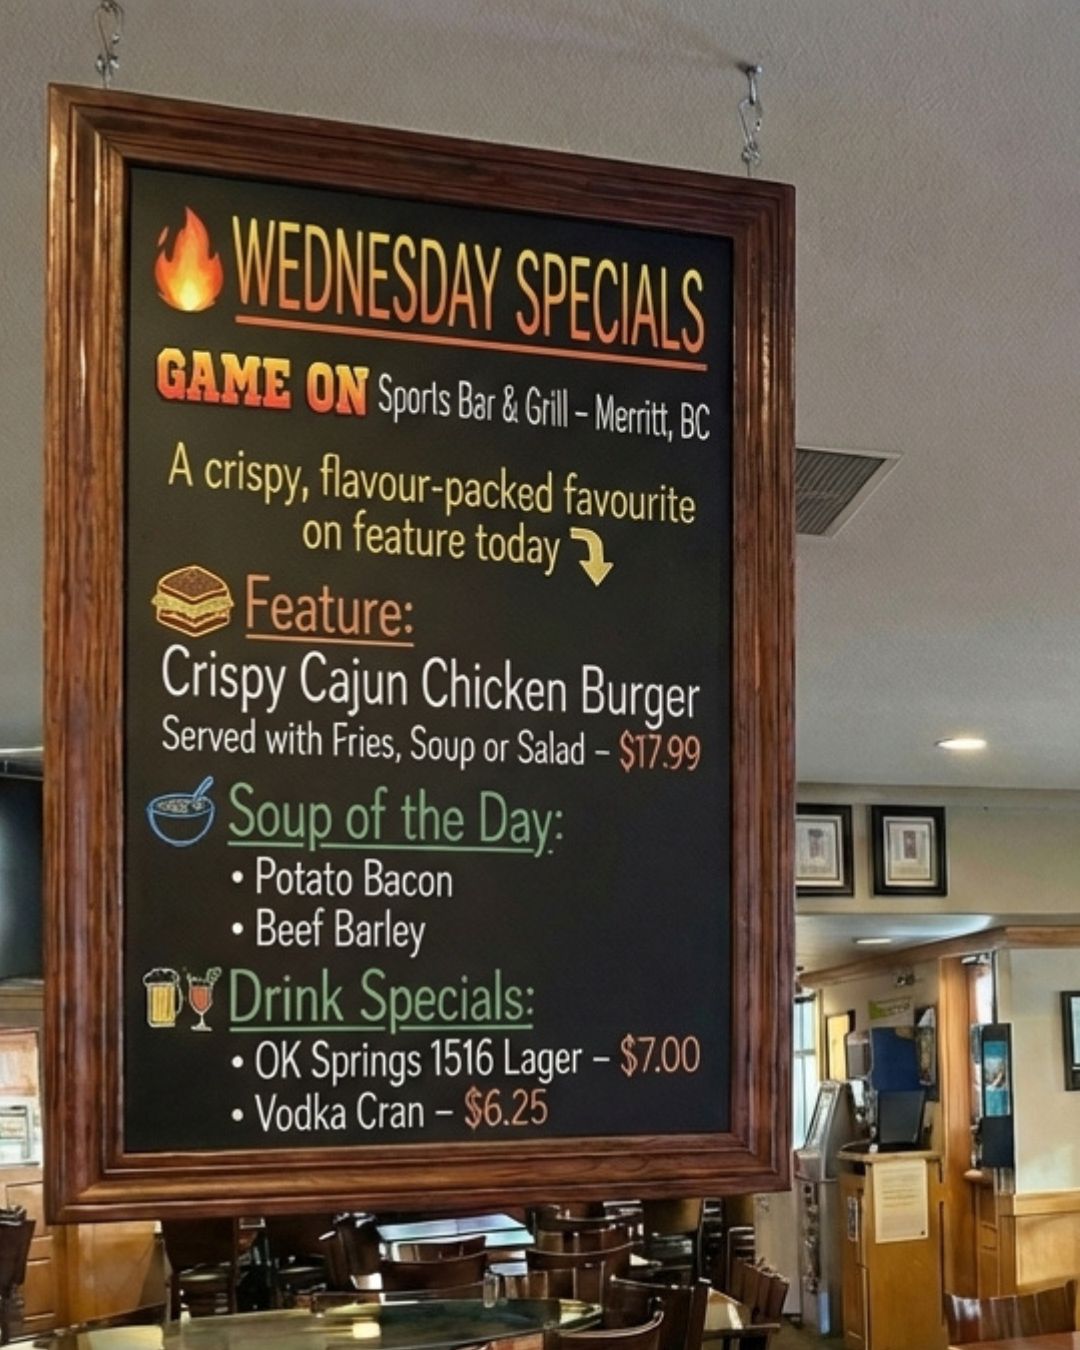 WEDNESDAY SPECIALS
GAME ON Sports Bar & Grill – Merritt, BC
A crispy, flavour-packed favourite
on feature today
Feature:
Crispy Cajun Chicken Burger
Served with Fries, Soup or Salad – $17.99
Soup of the Day:
• Potato Bacon
• Beef Barley
Drink Specials:
• OK Springs 1516 Lager – $7.00
• Vodka Cran – $6.25